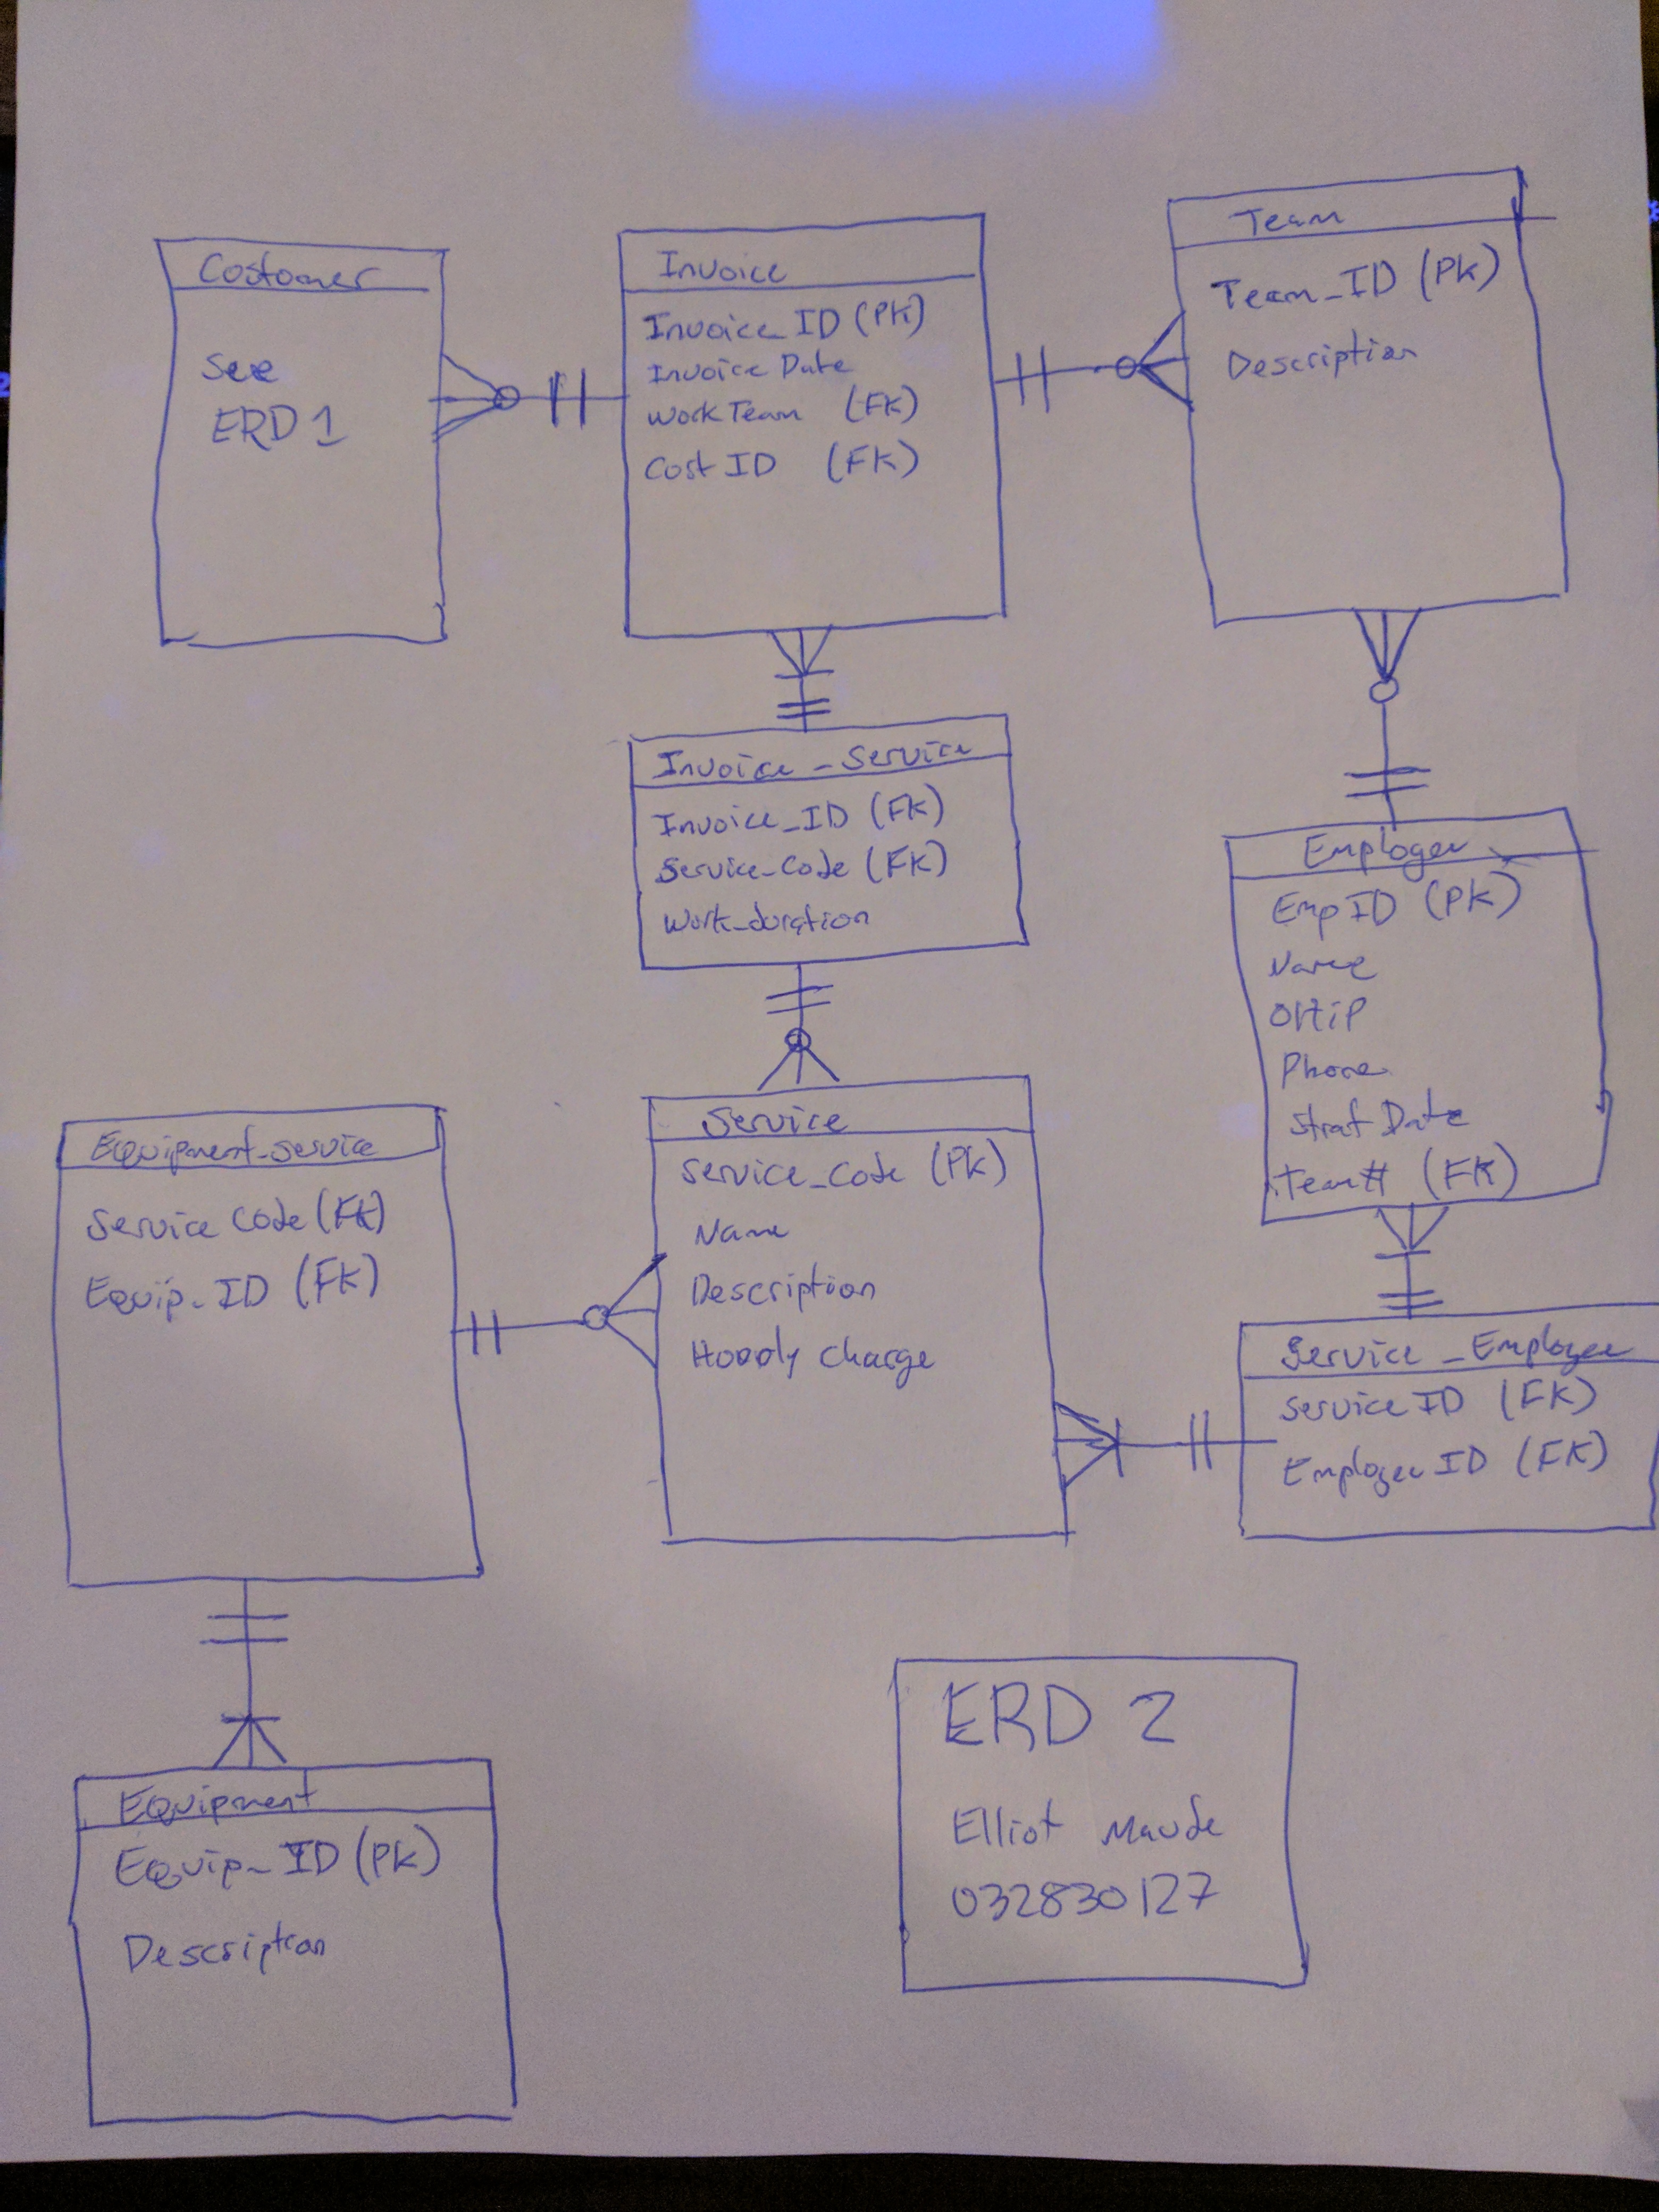 Costomer
see
ERD 1
Invoice
Invoice_ID (PK)
Invoice Date
Work Team (FK)
Cost ID (FK)
Team
Team_ID (PK)
Description
Invoice_Service
Invoice_ID (FK)
Service_Code (FK)
Work_duration
Employee
Emp ID (PK)
Name
OHiP
Phone
Strat Date
Team# (FK)
Equipment_Service
Service Code (FK)
Equip_ID (FK)
Service
Service_Code (PK)
Name
Description
Hourly Charge
Service_Employee
Service ID (FK)
Employee ID (FK)
Equipment
Equip_ID (PK)
Description
ERD 2
Elliot Maude
032830127